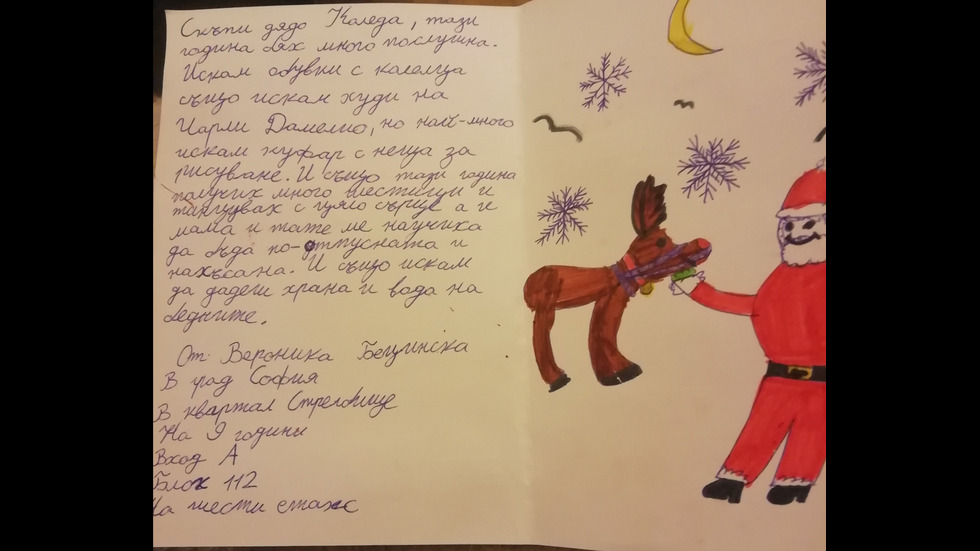 Скъпи дядо Коледа, тази
година бях много послушна.
Искам обувки с колелца
също искам худи на
Чарли Дамелио, но най-много
искам куфар с неща за
рисуване. И също тази година
получих много шестици и
танцувах с цяло сърце а и
мама и тате ме научиха
да бъда по-отпусната и
нахъсана. И също искам
да дадеш храна и вода на
бедните.
От: Вероника Бецинска
В град София
В квартал Стрелбище
На 9 години
Вход А
Блок 112
На шести етаж